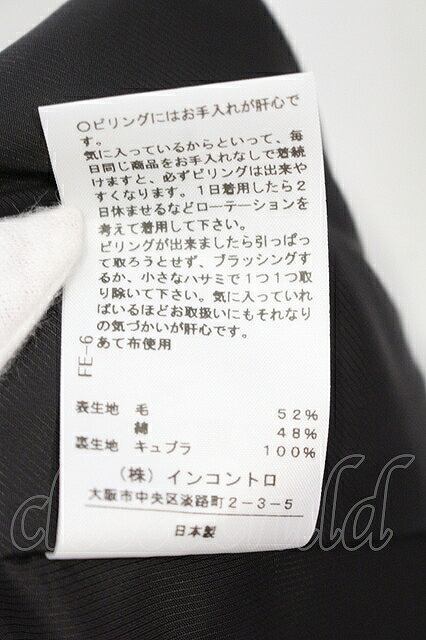 ○ピリングにはお手入れが肝心で
す。
気に入っているからといって、毎
日同じ商品をお手入れなしで着続
けますと、必ずピリングは出来や
すくなります。1日着用したら2
日休ませるなどローテーションを
考えて着用して下さい。
ピリングが出来ましたら引っぱっ
て取ろうとせず、ブラッシングす
るか、小さなハサミで1つ1つ取
り除いて下さい。気に入っていれ
ばいるほどお取扱いにもそれなり
の気づかいが肝心です。
あて布使用
FE-6
表生地 毛 52%
綿 48%
裏生地 キュプラ 100%
(株)インコントロ
大阪市中央区淡路町2-3-5
日本製